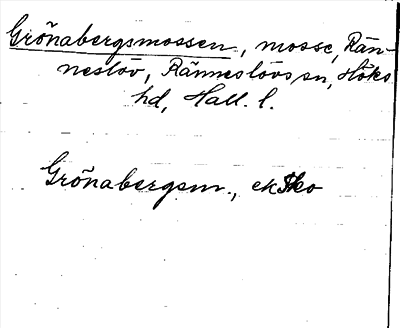 Grönabergsmossen, mosse, Rän-
neslöv, Ränneslövs sn, Höks
hd, Hall. l.
Grönabergsm., ek